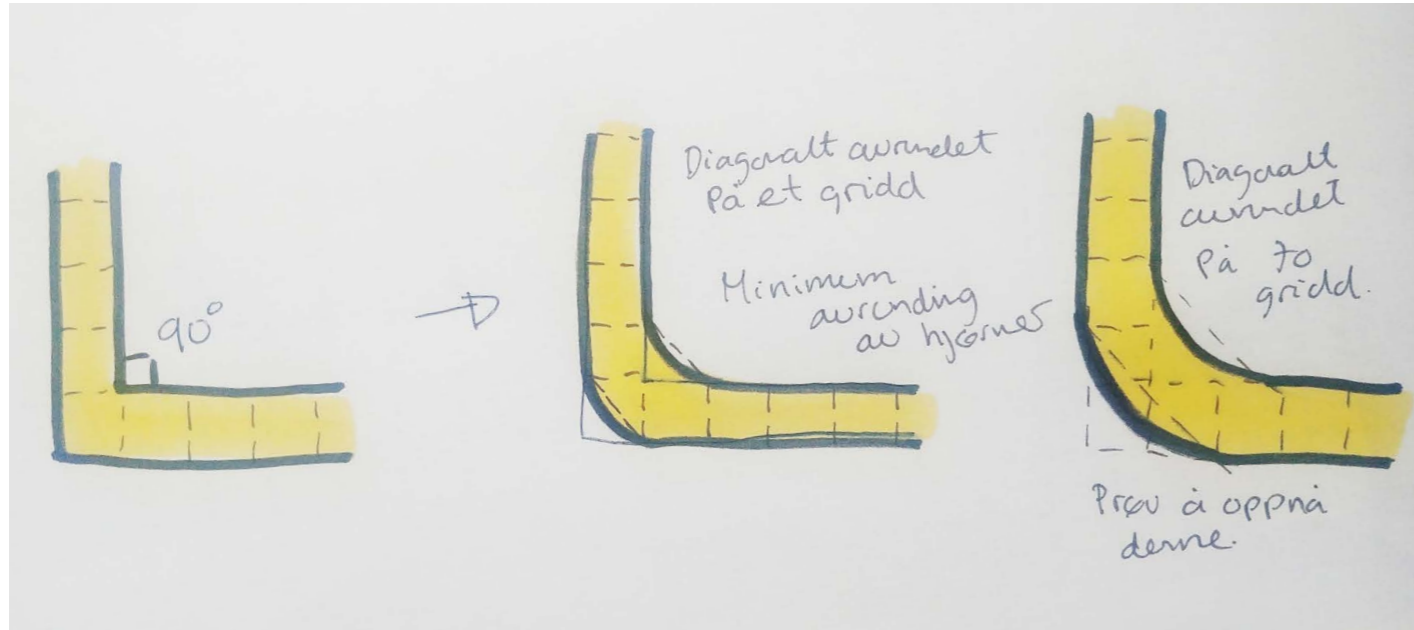 90°
Diagonalt avrundet
På et gridd
Minimum
avrunding
av hjørner
Diagonalt
avrundet
På to
gridd.
Prøv å oppnå
denne.